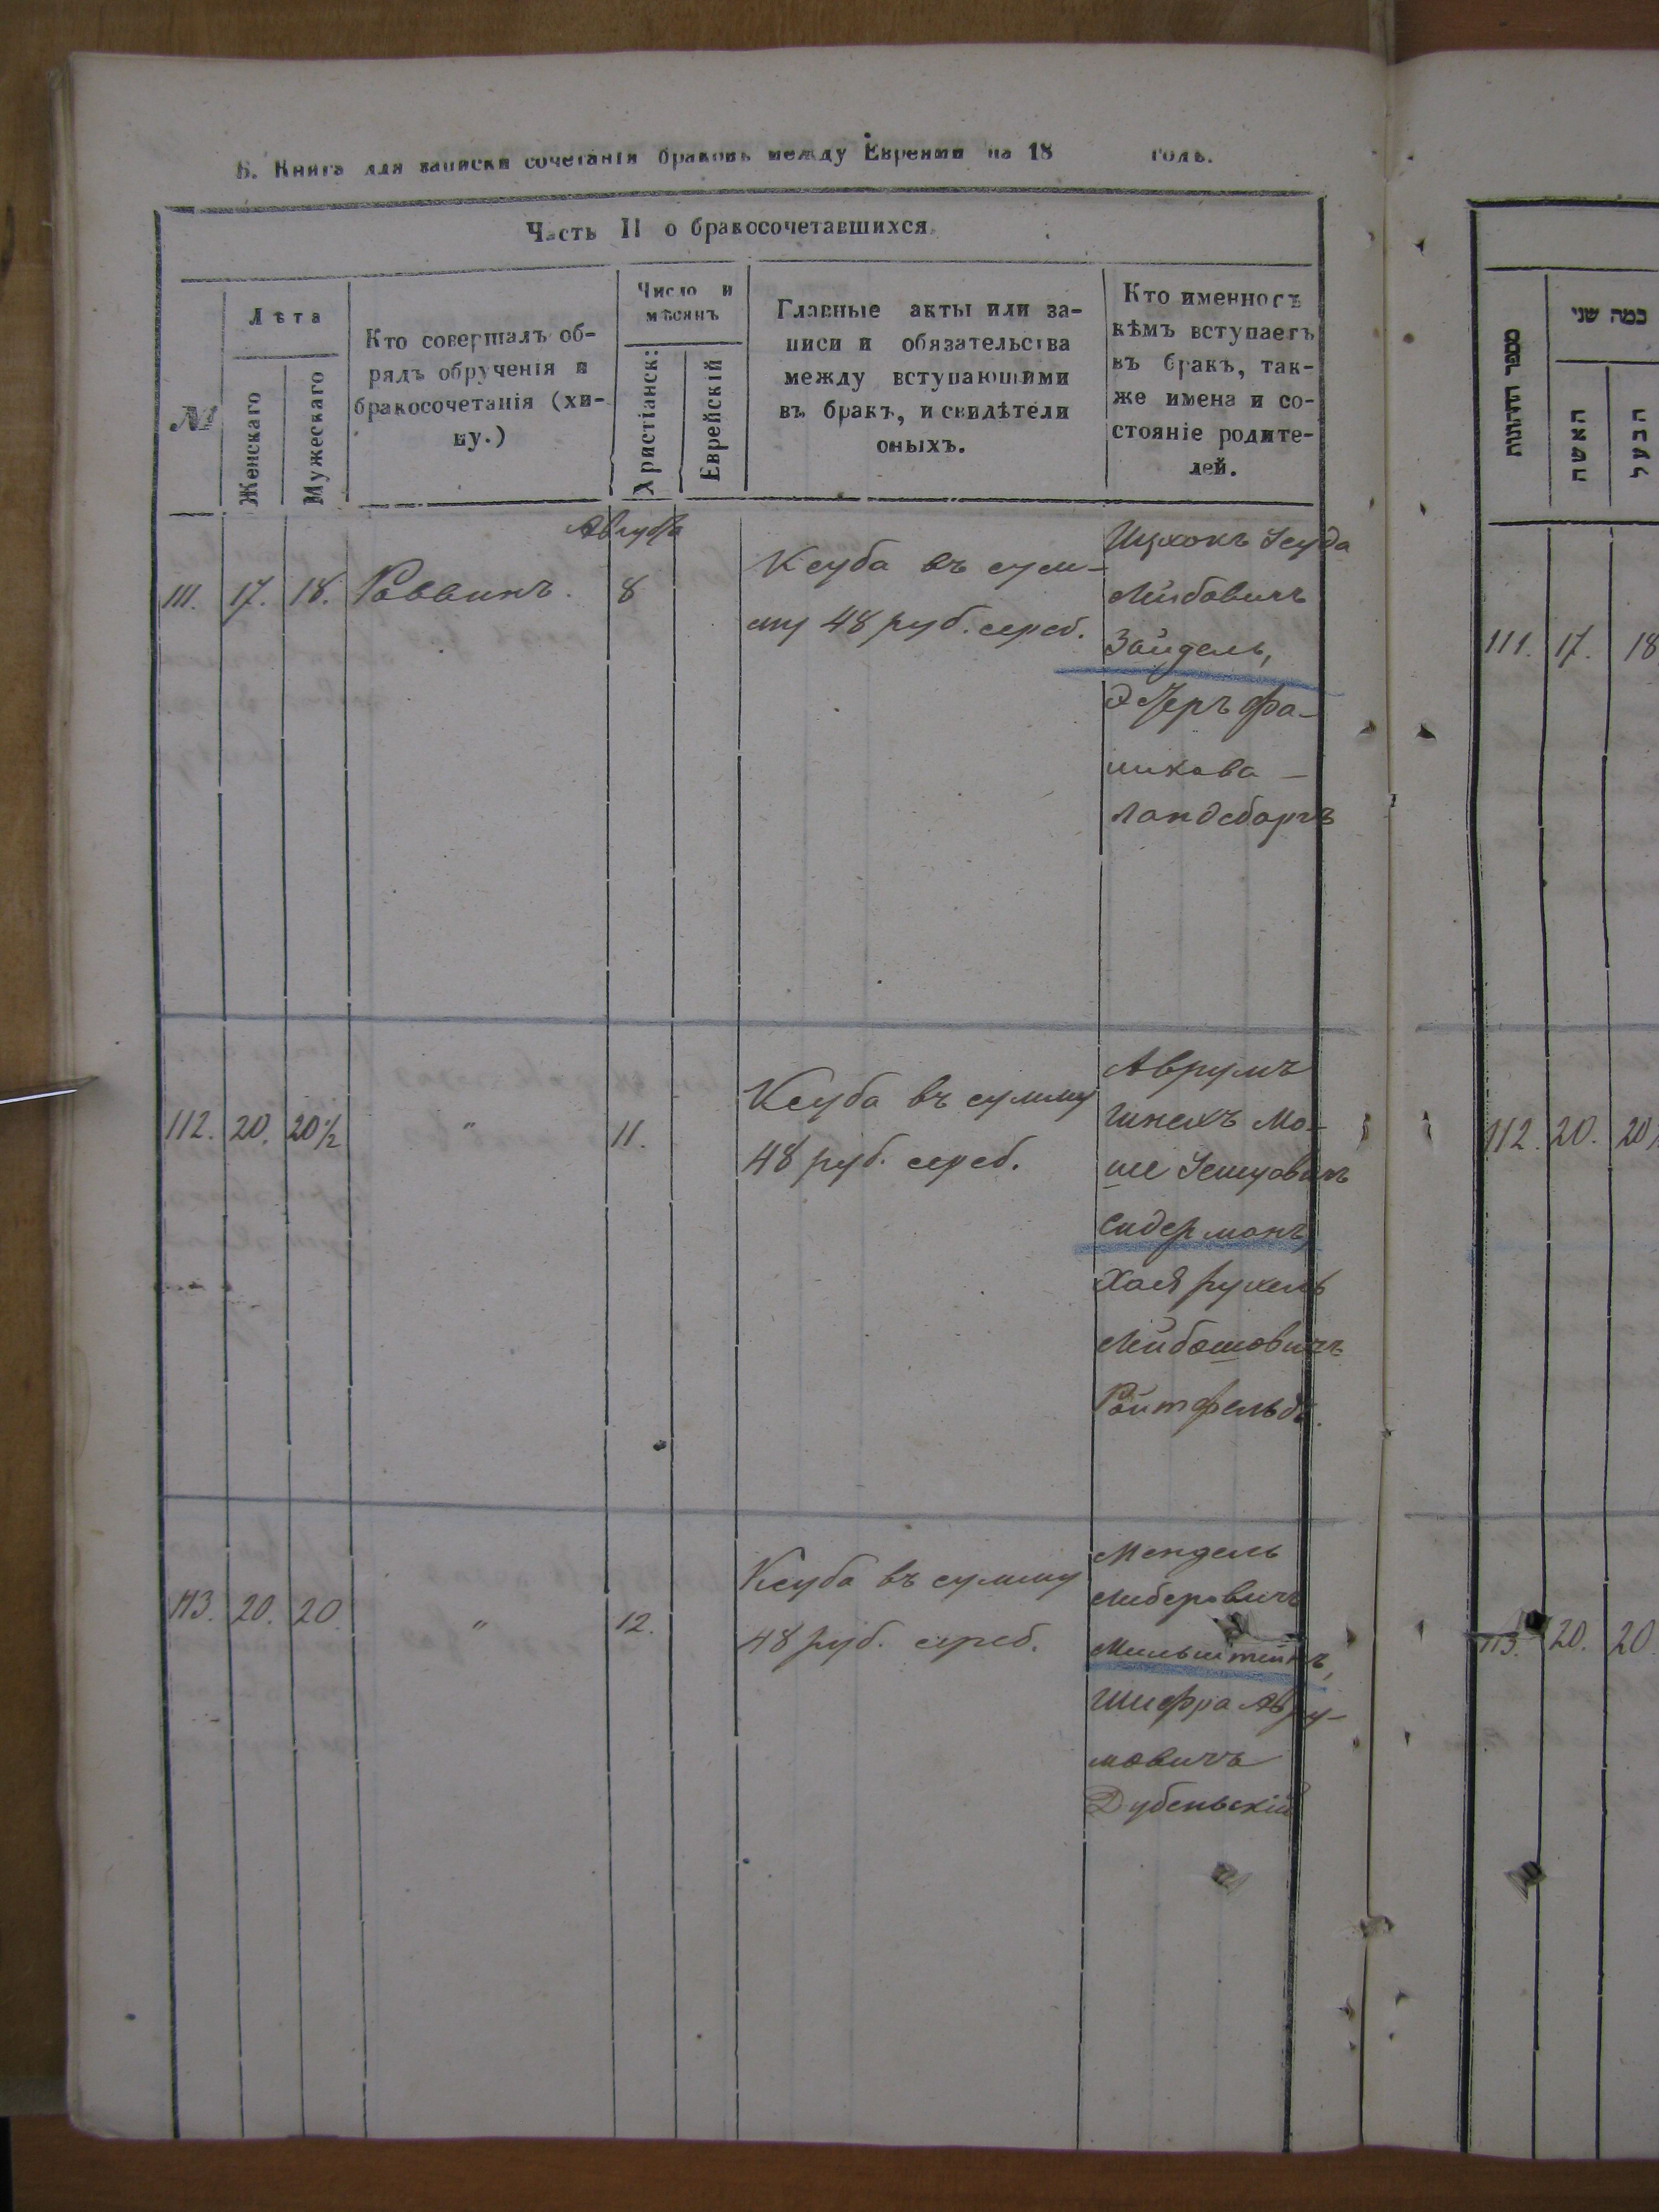 Б. Книга для записки сочетанія браковъ между Евреями на 18 годъ.
Часть II о бракосочетавшихся
№
Лѣта
Женскаго
Мужескаго
Кто совершалъ об-
рядъ обрученія и
бракосочетанія (хи-
пу.)
Число и
мѣсяцъ
Христіанск:
Еврейскій
Главные акты или за-
писи и обязательства
между вступающими
въ бракъ, и свидѣтели
оныхъ.
Кто именно съ
кѣмъ вступаетъ
въ бракъ, так-
же имена и со-
стояніе родите-
лей.
Августа
111. 17. 18. Раввинъ. 8
Ксуба въ сум-
му 48 руб. сереб.
Ицхокъ Іеуда
Лейбовичъ
Зайдель,
Эстеръ
Ландсбергъ
112. 20. 20½ " 11.
Ксуба въ сумму
48 руб. сереб.
Аврумъ
Мо-
ше
Сидерманъ,
Хая Рухель
Лейбошовичъ
Ройтфельдъ.
113. 20. 20. " 12.
Ксуба въ сумму
48 руб. сереб.
Мендель
Либеровичъ
Мильштейнъ,
Шифра Авру-
мовичъ
Дубеньскій
מספר החתונות
כמה שני
האשה
הבעל
111. 17. 18
112. 20. 20½
113. 20. 20